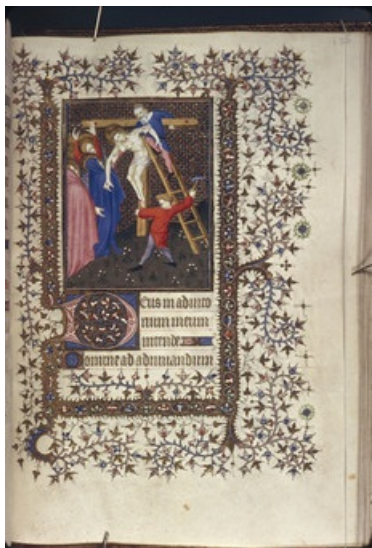 Deus in adiuto
rium meum
intende
Domine ad adiuuandum